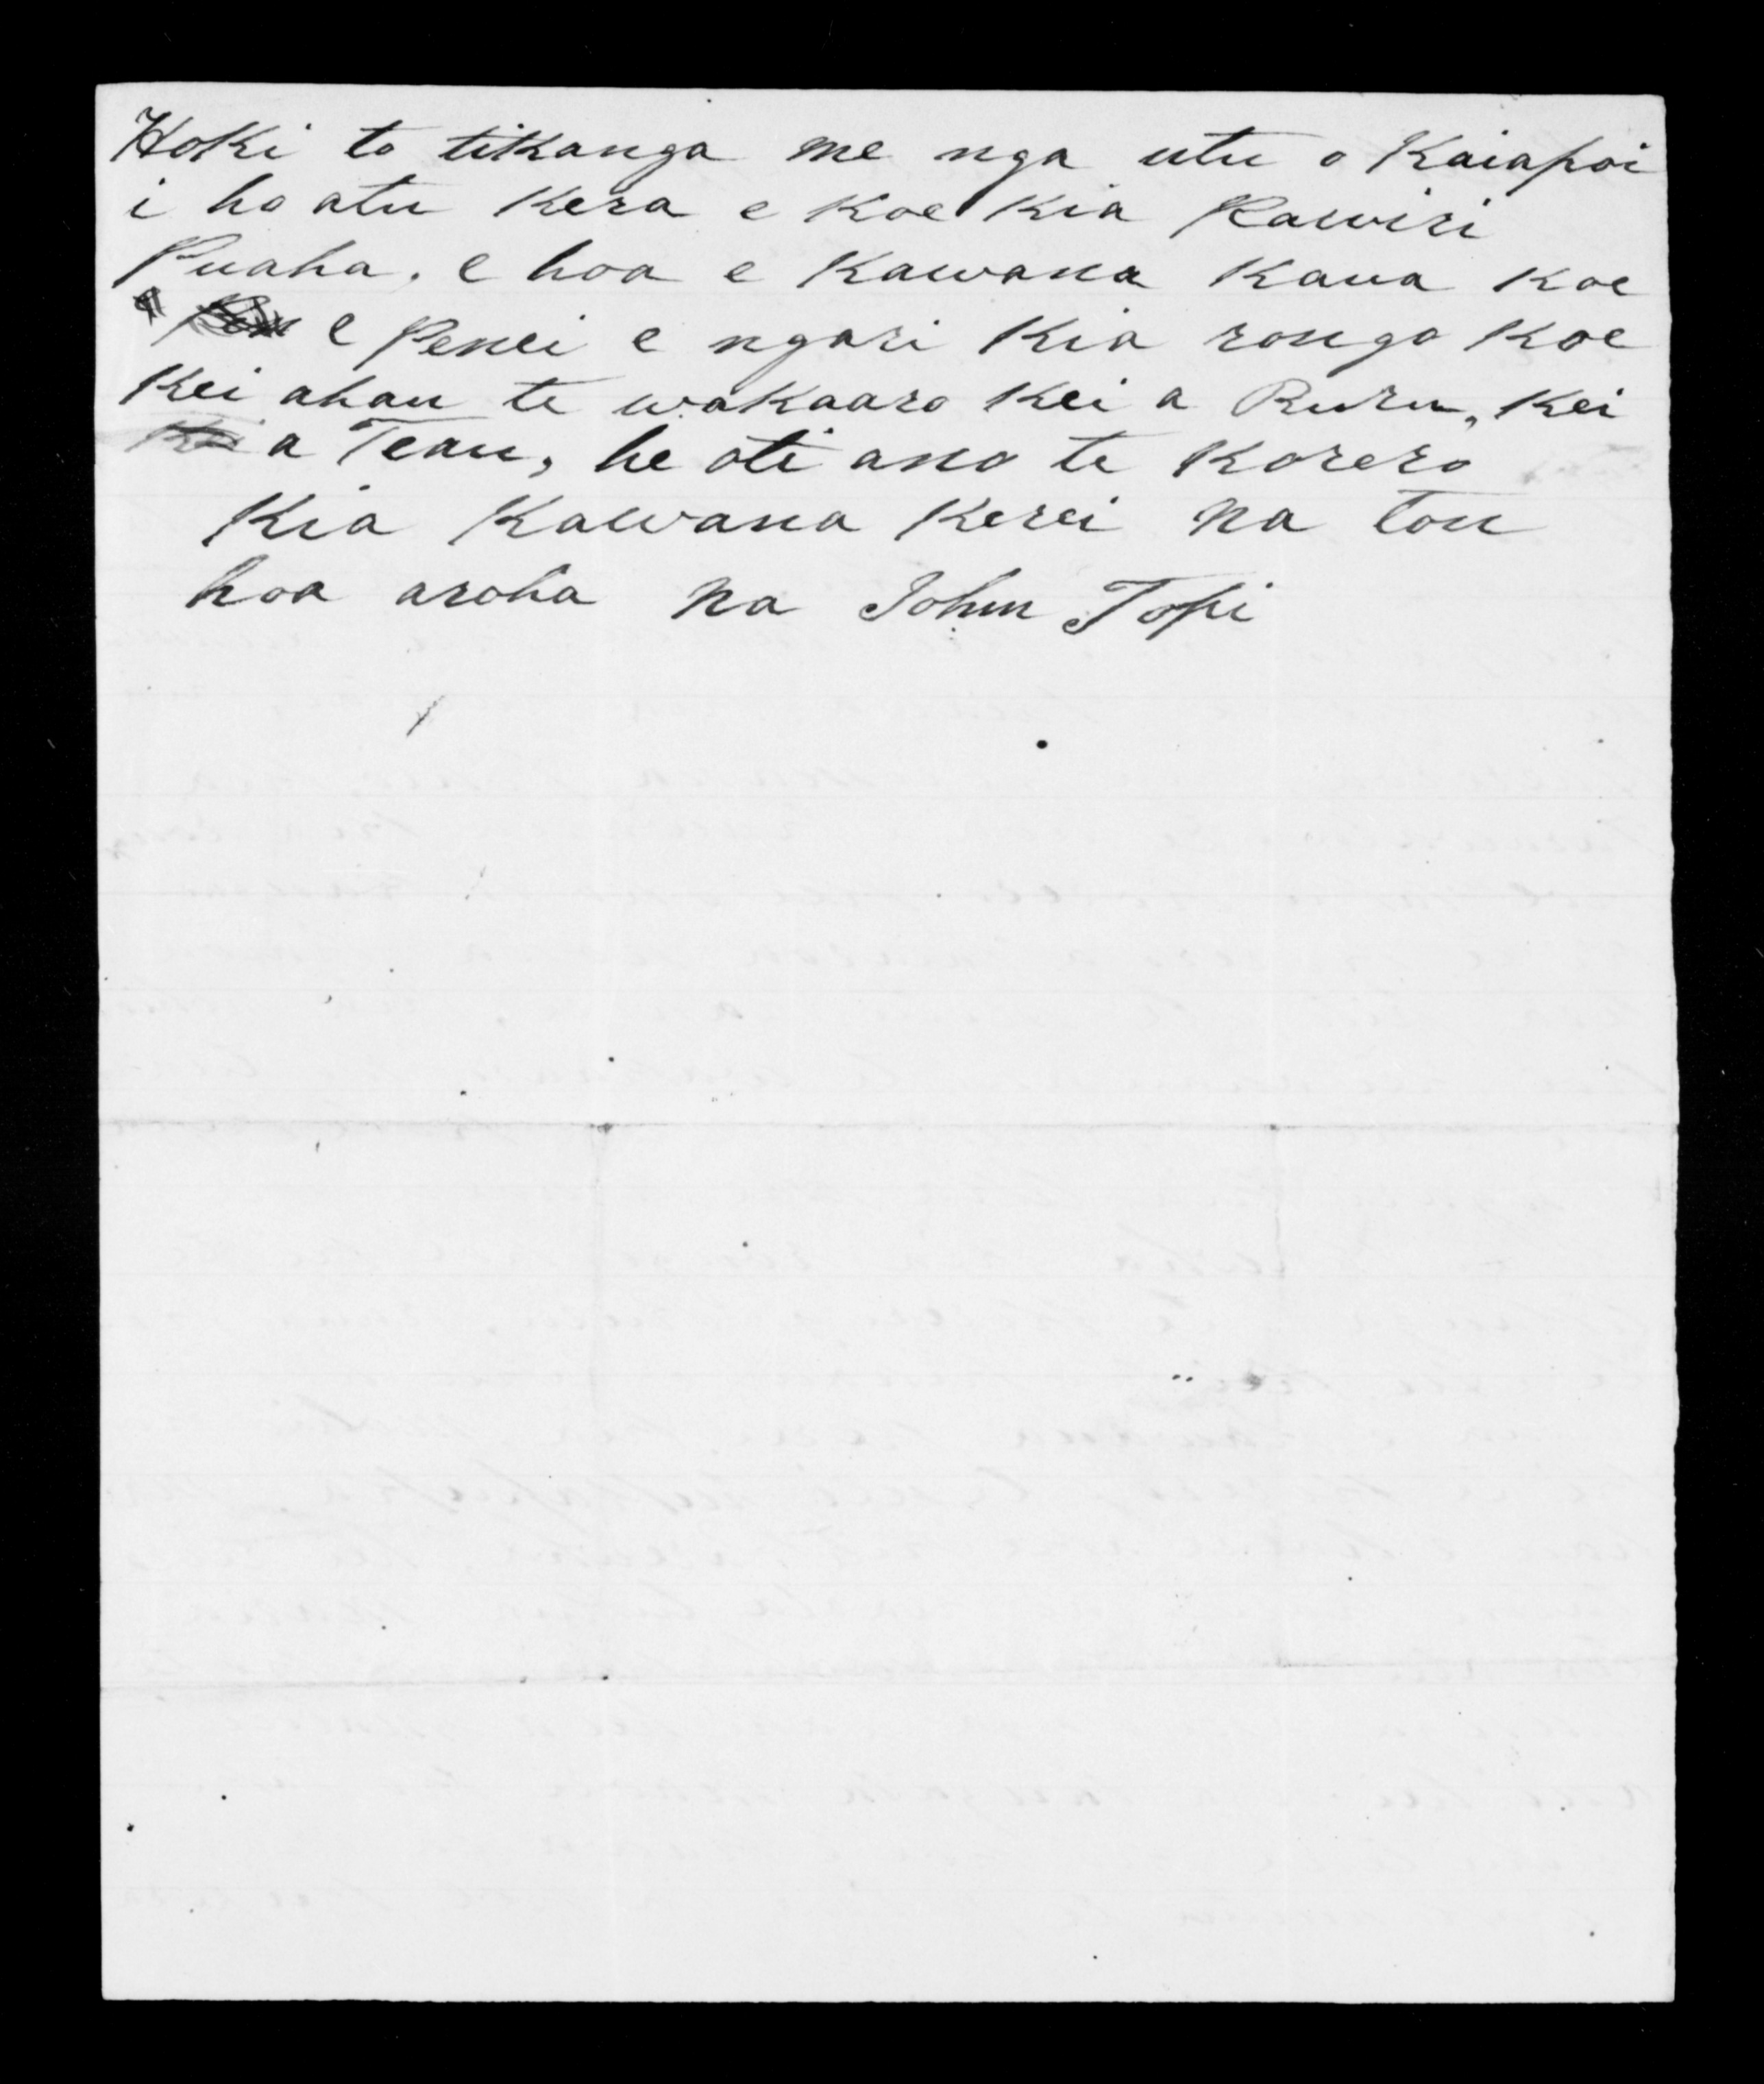 Hoki to tikanga me nga utu o Kaiapoi
i ho atu Kera e Koe Kia Rawiri
Puaha. e hoa e Kawana Kaua Koe
e Penei e ngari Kia rongo Koe
Kei ahau te wakaaro Kei a Ruru, Kei
a Teau, he oti ano te Korero
Kia Kawana Kerei Na tou
hoa aroha Na John Topi